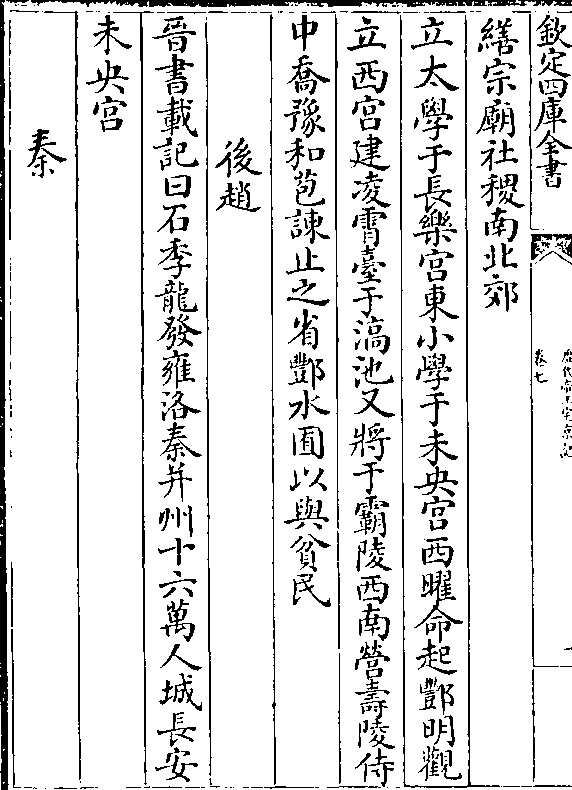 欽定四庫全書
歷代帝王宅京記
卷七
繕宗廟社稷南北郊
立太學于長樂宮東小學于未央宮西曜命起酆明觀
立西宮建凌霄臺于滈池又將于霸陵西南營壽陵侍
中喬豫和苞諫止之省酆水囿以與貧民
後趙
晉書載記曰石季龍發雍洛秦并州十六萬人城長安
未央宮
秦